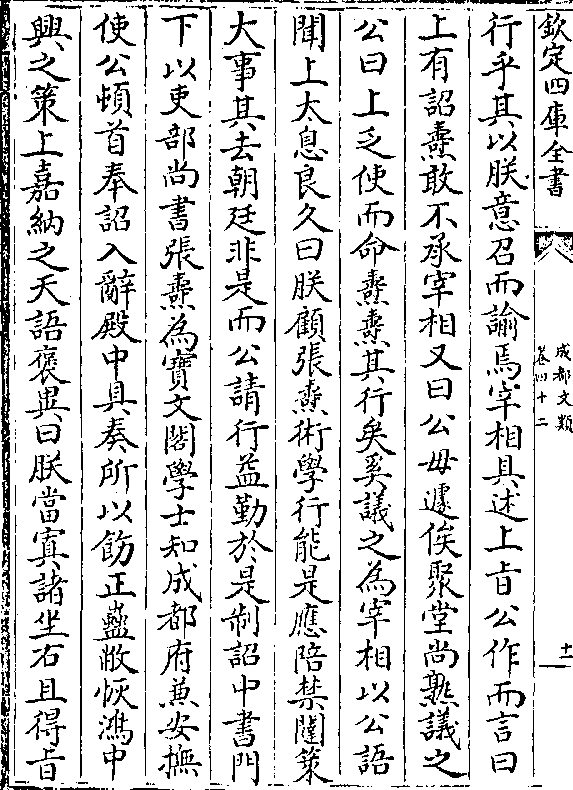 欽定四庫全書
成都文類
卷四十二
十一
行乎其以朕意召而諭焉宰相具述上旨公作而言曰
上有詔燾敢不承宰相又曰公毋遽俟聚堂尚熟議之
公曰上乏使而命燾燾其行矣奚議之為宰相以公語
聞上太息良久曰朕顧張燾術學行能是應陪禁闥策
大事其去朝廷非是而公請行益勤於是制詔中書門
下以吏部尚書張燾為寶文閣學士知成都府兼安撫
使公頓首奉詔入辭殿中具奏所以飭正蠱敝恢鴻中
興之策上嘉納之天語褒異曰朕當寘諸坐右且得旨